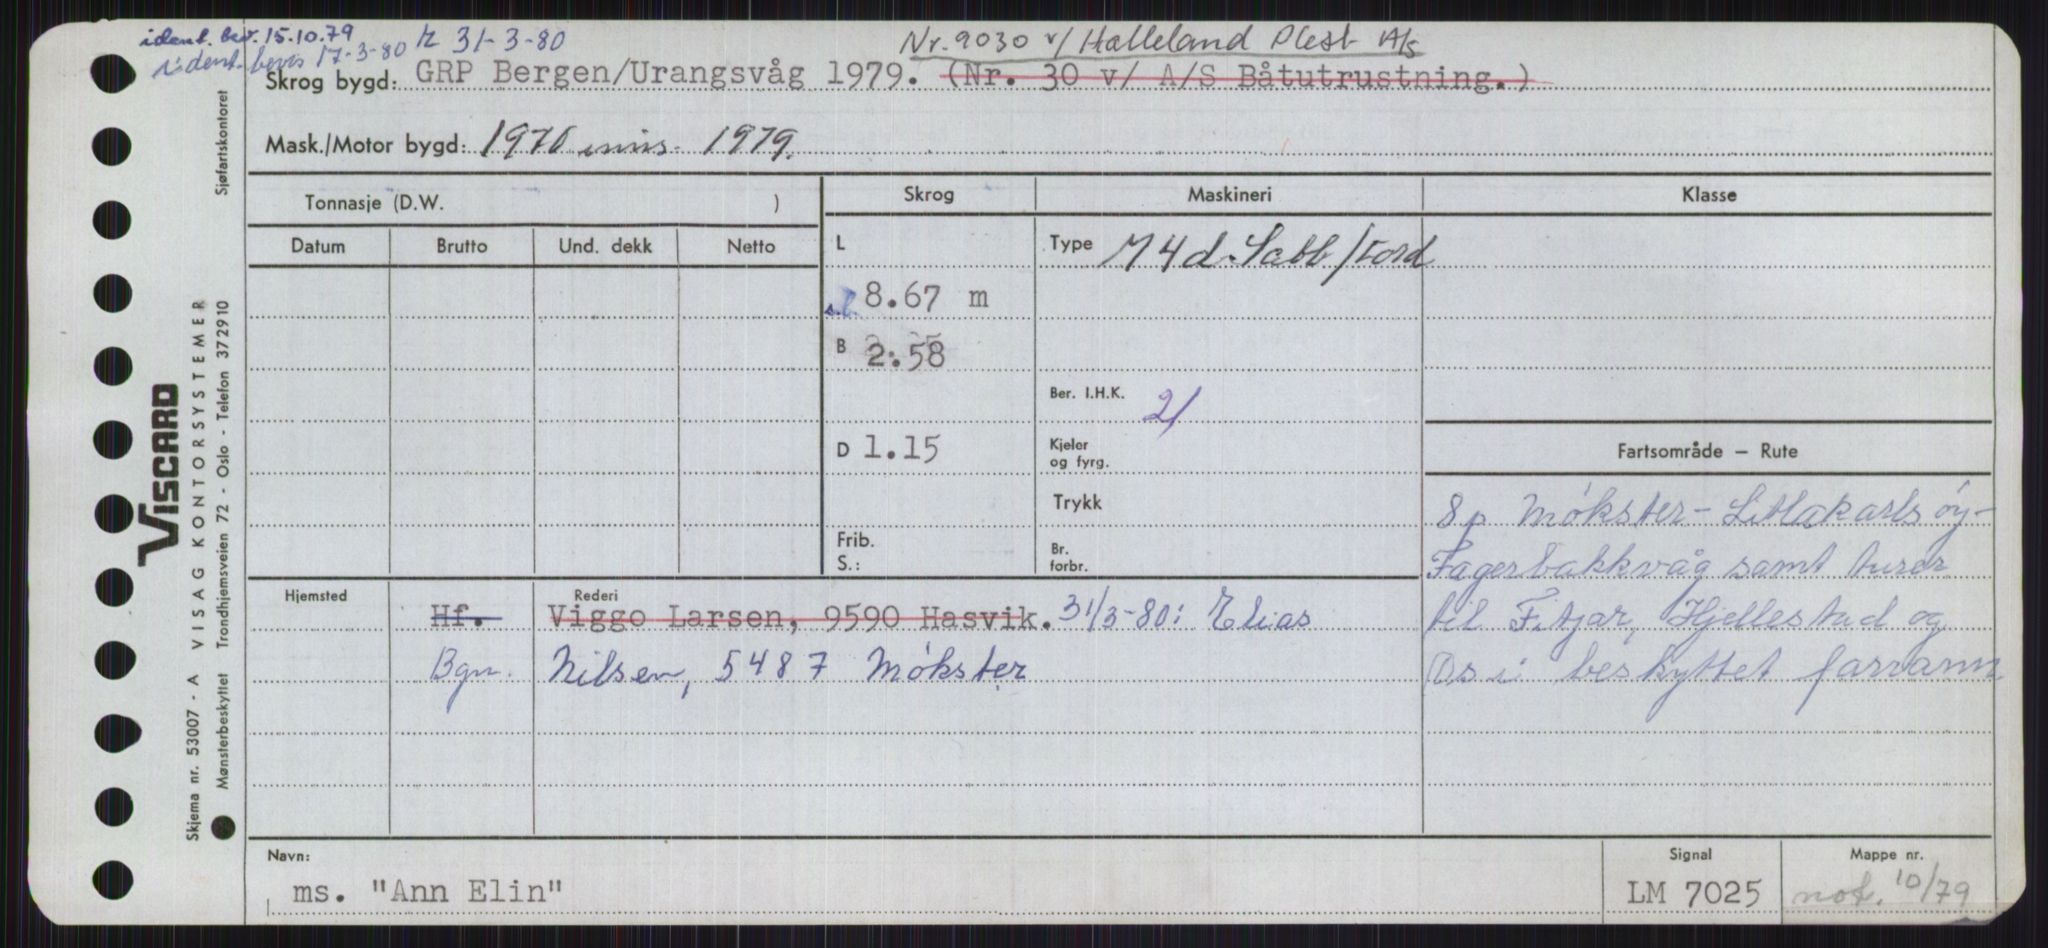 ident. bev. 15.10.79
ident. bevis 17-3-80 r 31-3-80
Nr. 9030 v/ Halleland Plest A/s
Skrog bygd: GRP Bergen/Urangsvåg 1979. (Nr. 30 v/ A/S Båtutrustning.)
Mask./Motor bygd: 1976 inns. 1979.
Tonnasje (D.W. )
Skrog
Maskineri
Klasse
Datum Brutto Und. dekk Netto
L
8.67 m
B 2.58
D 1.15
Frib.
S.:
Type M 4d. Sabb/Ford
Ber. I.H.K. 21
Kjeler
og fyrg.
Trykk
Br.
forbr.
Fartsområde – Rute
8p Møkster - Litlakarlsøy -
Fagerbakkvåg samt turer
til Fitjar, Hjellestad og
Os i beskyttet farvann
Hjemsted
Rederi
Hf. Viggo Larsen, 9590 Hasvik. 31/3-80: Elias
Bgn. Nilsen, 5487 Møkster
Navn:
ms. "Ann Elin"
Signal
LM 7025
Mappe nr.
not. 10/79
VISCARD
VISAG KONTORSYSTEMER
Skjema nr. 53007 - A
Mønsterbeskyttet Trondhjemsveien 72 - Oslo - Telefon 372910
Sjøfartskontoret